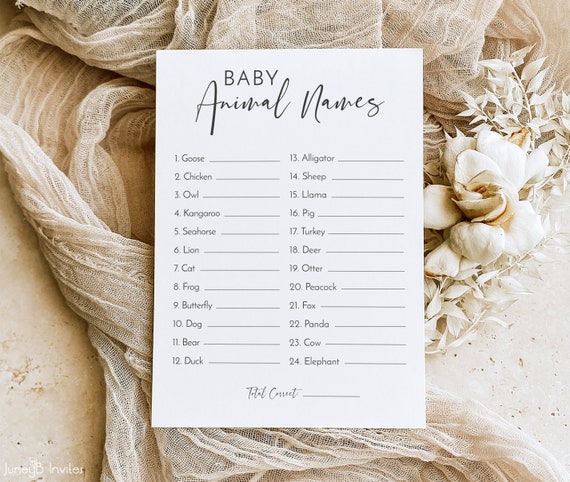 BABY
Animal Names
1. Goose
2. Chicken
3. Owl
4. Kangaroo
5. Seahorse
6. Lion
7. Cat
8. Frog
9. Butterfly
10. Dog
11. Bear
12. Duck
13. Alligator
14. Sheep
15. Llama
16. Pig
17. Turkey
18. Deer
19. Otter
20. Peacock
21. Fox
22. Panda
23. Cow
24. Elephant
Total Correct
JuneyB Invites